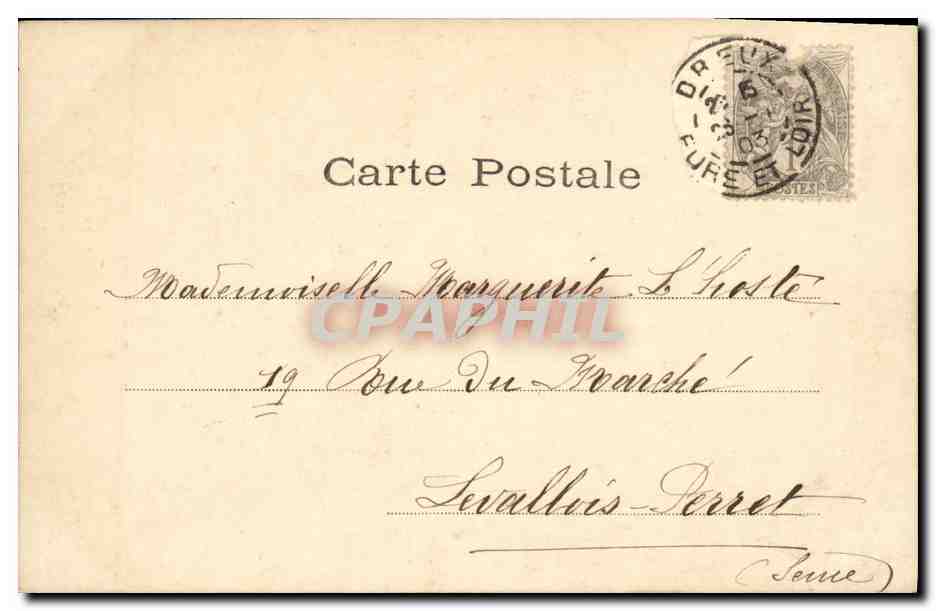 DREUX
EURE ET LOIR
03
POSTES
Carte Postale
Mademoiselle Marguerite L'hosté
CPAPHIL
19 Rue du Marché
Levallois-Perret
(Seine)